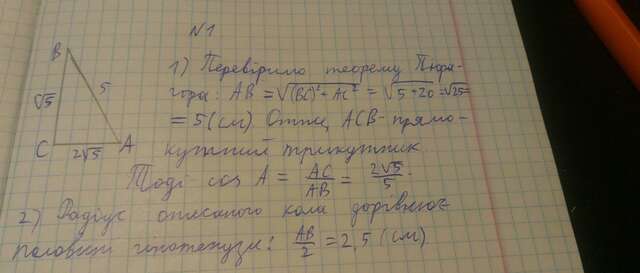 N1
B
√5
5
C
2√5
A
1) Перевіримо теорему Піфа-
гора: AB = √(BC)² + AC² = √5+20 = √25 =
= 5 (см) Отже, ACB - прямо-
кутний трикутник.
Тоді cos A = AC/AB = 2√5/5.
2) Радіус описаного кола дорівнює
половині гіпотенузи: AB/2 = 2,5 (см)